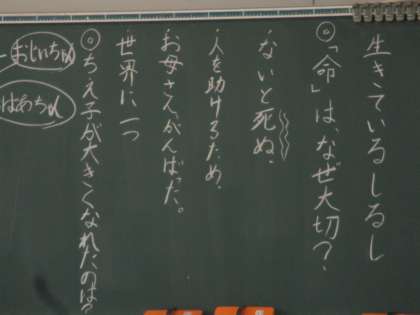 生きているしるし
◎「命」は、なぜ大切?
・ないと死ぬ。
・人を助けるため。
・お母さんがんばった。
世界に一つ
◎ちえ子が大きくなれたのは?
おじいちゃん
ばあちゃん